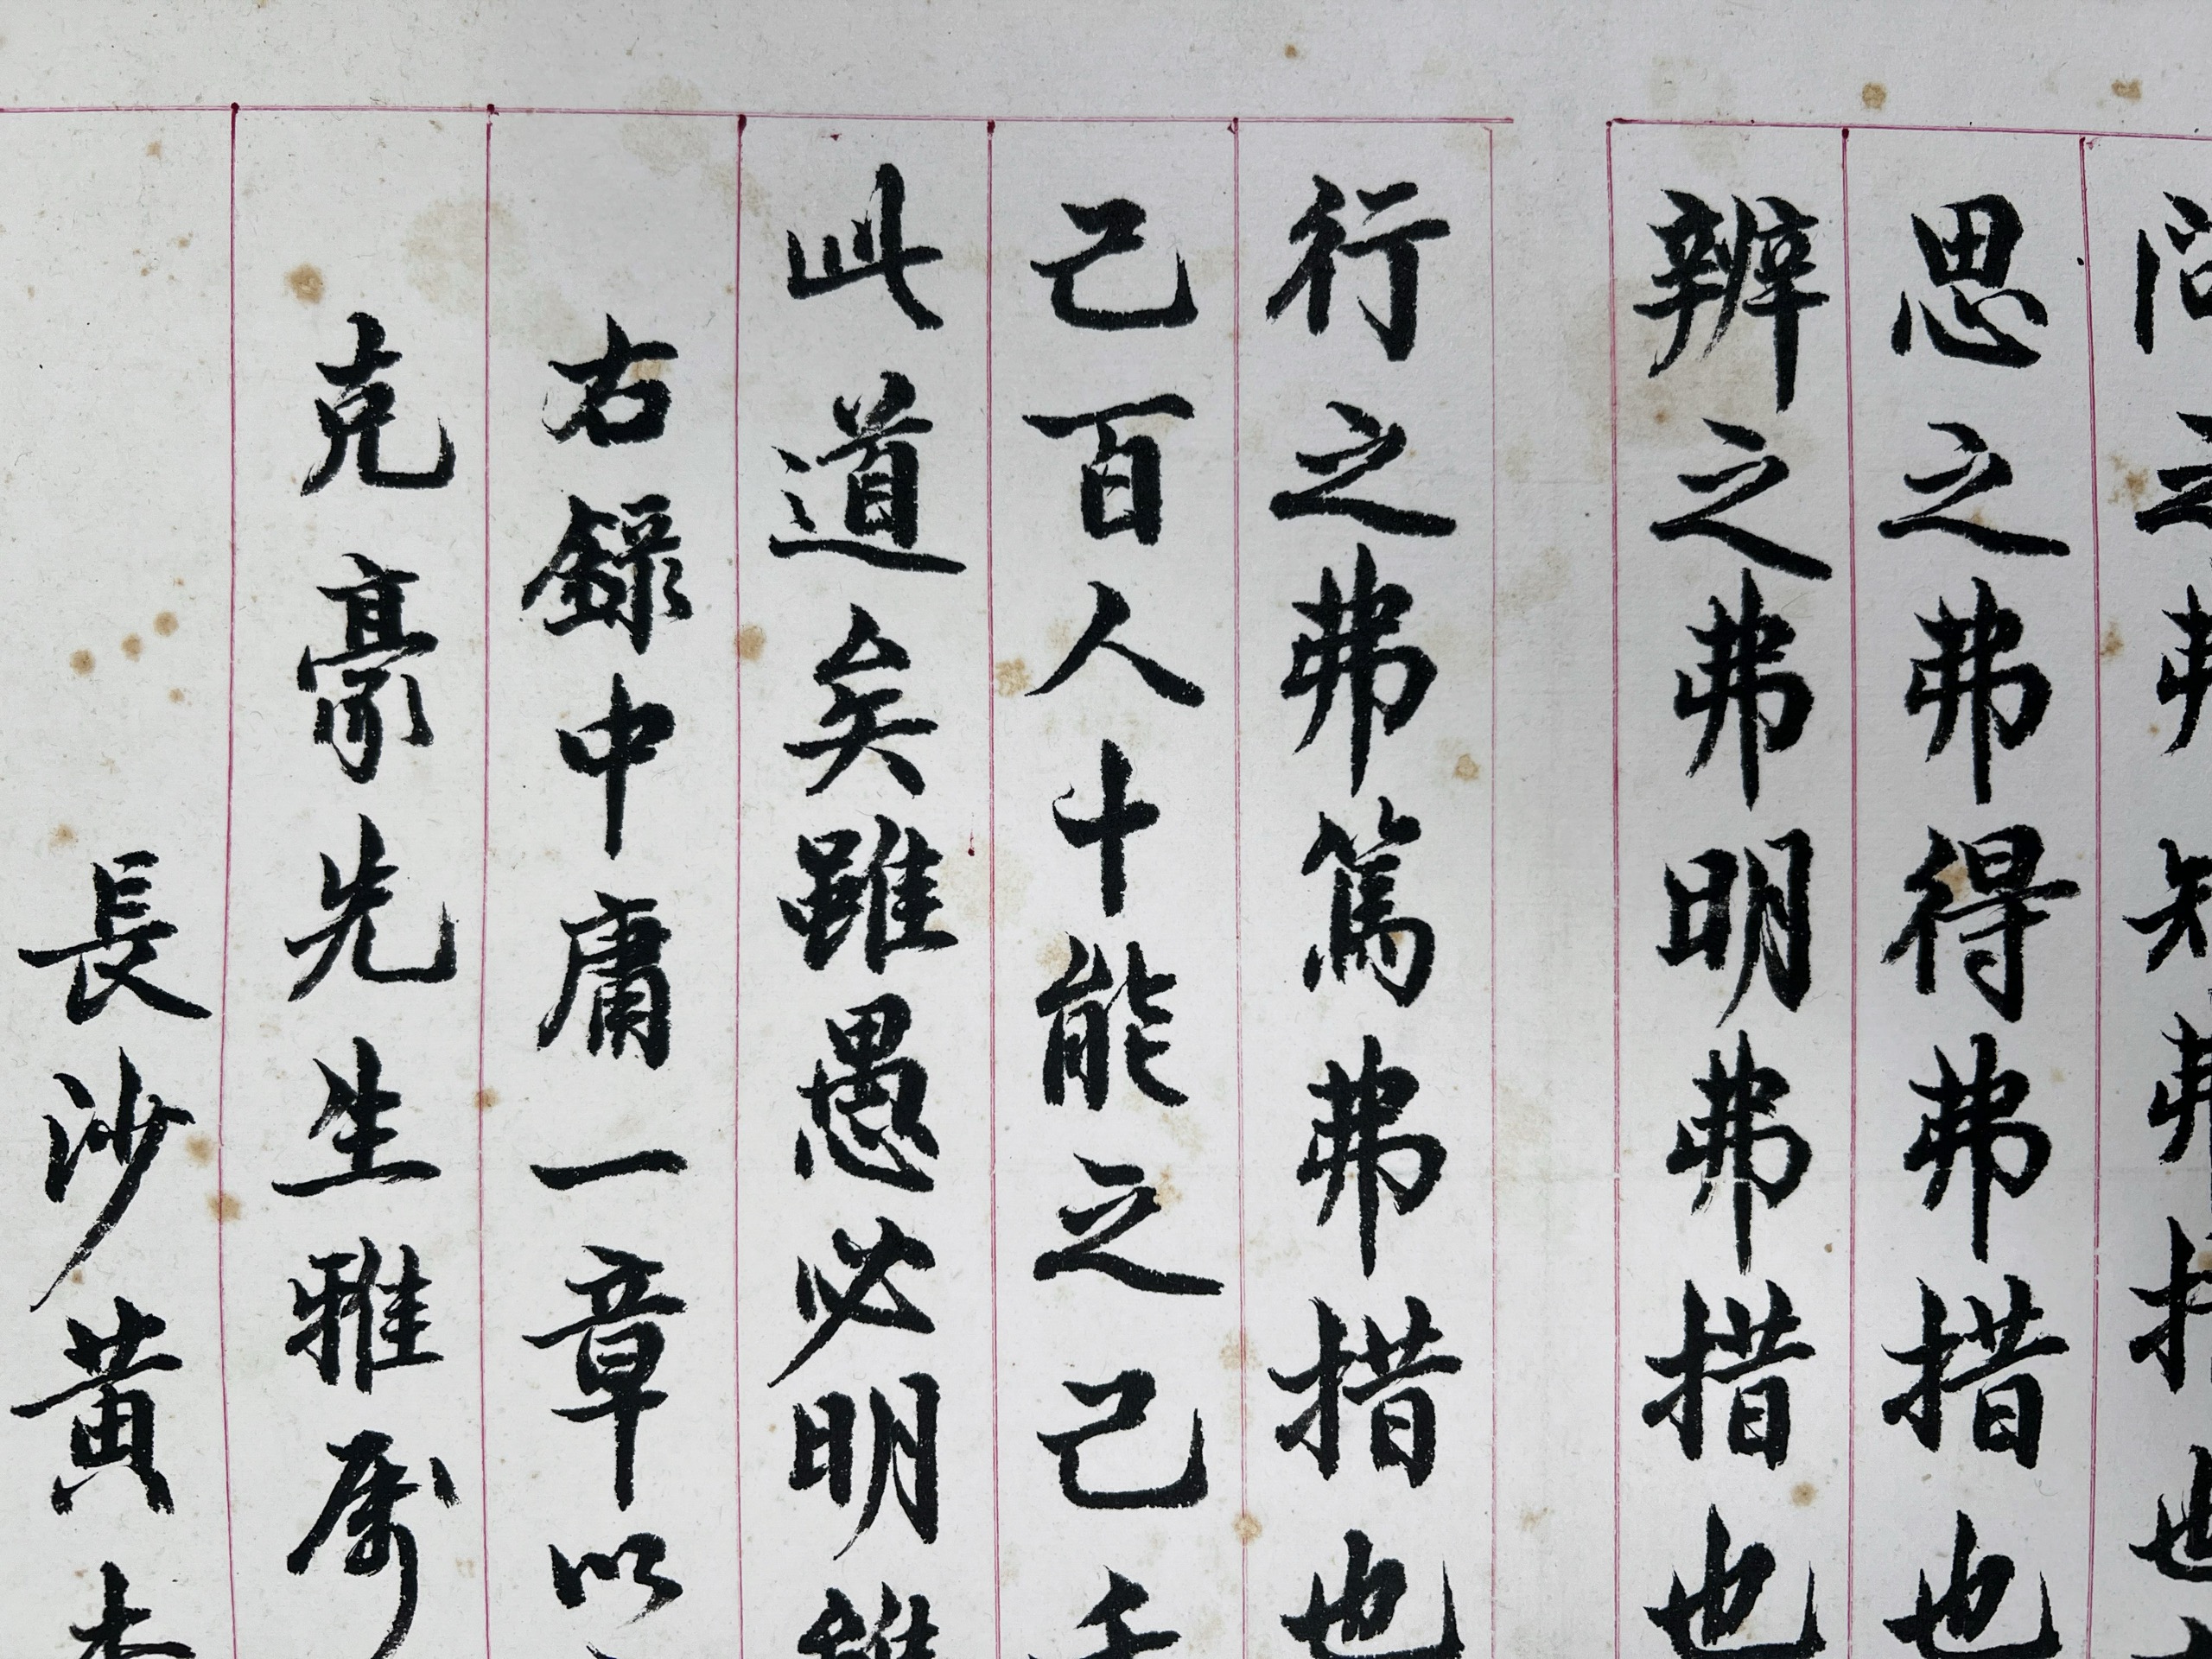 問之弗知弗措也
思之弗得弗措也
辨之弗明弗措也
行之弗篤弗措也
己百人十能之己千
此道矣雖愚必明雖
右錄中庸一章以
克豪先生雅屬
長沙黃